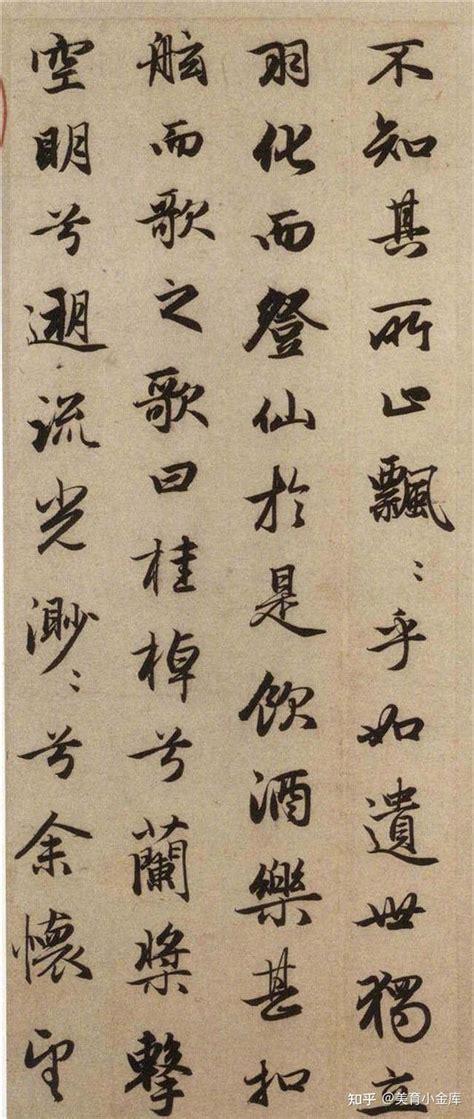 不知其所止飄〻乎如遺世獨立
羽化而登仙於是飲酒樂甚扣
舷而歌之歌曰桂棹兮蘭槳擊
空明兮遡流光渺〻兮余懷望
知乎 @美育小金库